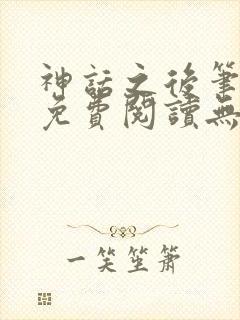 神話之後筆
免費閱讀無
一笑坐簫